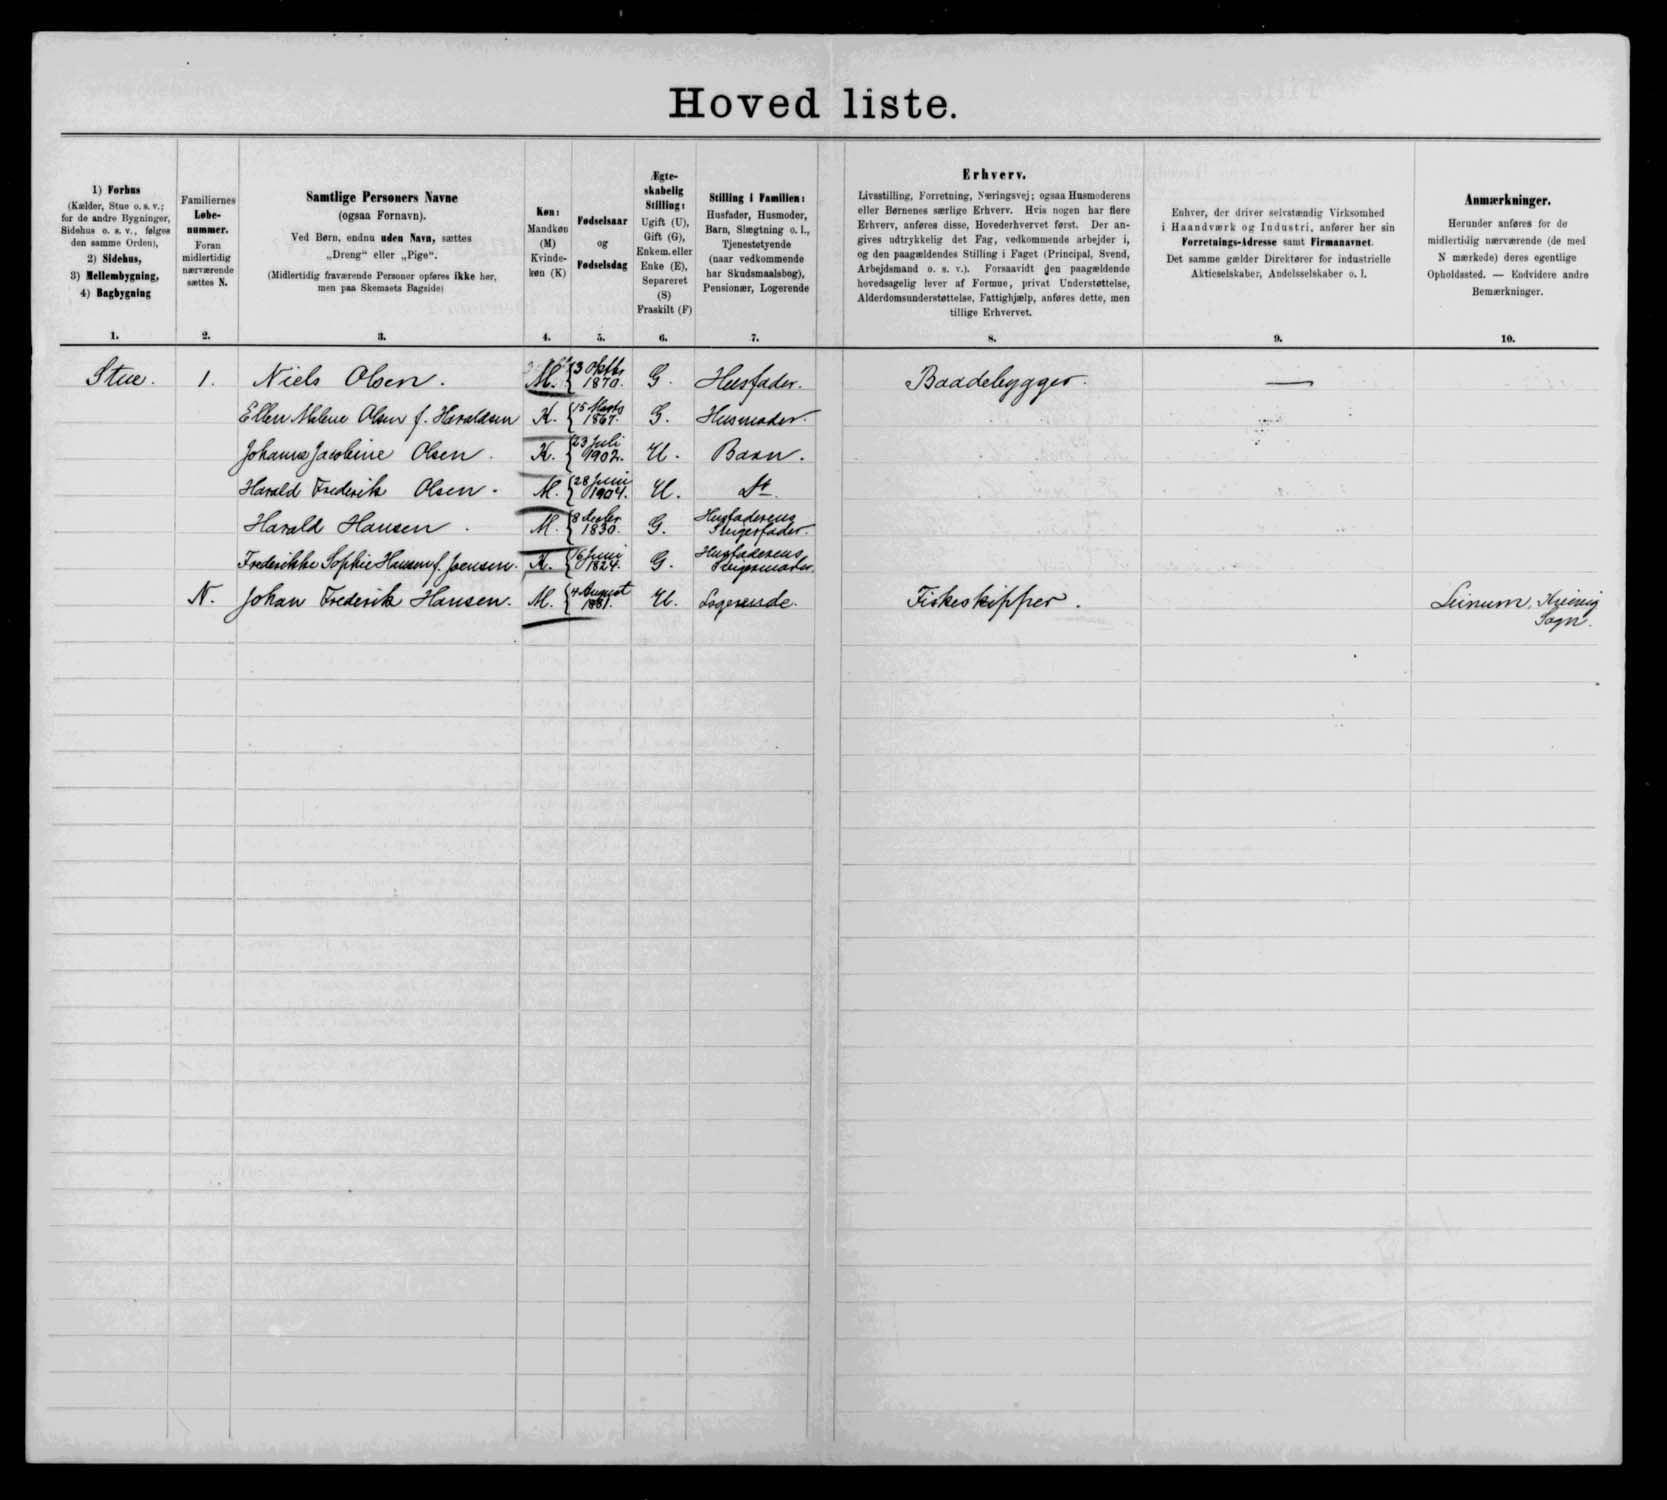 Hoved liste.
1) Forhus
(Kælder, Stue o. s. v.;
for de andre Bygninger,
Sidehus o. s. v., følges
den samme Orden),
2) Sidehus,
3) Mellembygning,
4) Bagbygning
1.
Familiernes
Løbe-
nummer.
Foran
midlertidig
nærværende
sættes N.
2.
Samtlige Personers Navne
(ogsaa Fornavn).
Ved Børn, endnu uden Navn, sættes
„Dreng“ eller „Pige“.
(Midlertidig fraværende Personer opføres ikke her,
men paa Skemaets Bagside)
3.
Køn:
Mandkøn
(M)
Kvinde-
køn (K)
4.
Fødselsaar
og
Fødselsdag
5.
Ægte-
skabelig
Stilling:
Ugift (U),
Gift (G),
Enkem. eller
Enke (E),
Separeret
(S)
Fraskilt (F)
6.
Stilling i Familien:
Husfader, Husmoder,
Barn, Slægtning o. l.,
Tjenestetyende
(naar vedkommende
har Skudsmaalsbog),
Pensionær, Logerende
7.
Erhverv.
Livsstilling, Forretning, Næringsvej; ogsaa Husmoderens
eller Børnenes særlige Erhverv. Hvis nogen har flere
Erhverv, anføres disse, Hovederhvervet først. Der an-
gives udtrykkelig det Fag, vedkommende arbejder i,
og den paagældendes Stilling i Faget (Principal, Svend,
Arbejdsmand o. s. v.). Forsaavidt den paagældende
hovedsagelig lever af Formue, privat Understøttelse,
Alderdomsunderstøttelse, Fattighjælp, anføres dette, men
tillige Erhvervet.
8.
Enhver, der driver selvstændig Virksomhed
i Haandværk og Industri, anfører her sin
Forretnings-Adresse samt Firmanavnet.
Det samme gælder Direktører for industrielle
Aktieselskaber, Andelsselskaber o. l.
9.
Anmærkninger.
Herunder anføres for de
midlertidig nærværende (de med
N mærkede) deres egentlige
Opholdssted. — Endvidere andre
Bemærkninger.
10.
Stue. 1. Niels Olsen. M. 3 Oktbr 1870. G. Husfader. Baadebygger. —
Ellen Malene Olsen f. Haraldsen K. 15 Marts 1867. G. Husmoder.
Johanna Jacobine Olsen. K. 23 Juli 1902. U. Barn.
Harald Frederik Olsen. M. 28 Juni 1904. U. Dt.
Harald Hansen. M. 8 Decbr 1830. G. Husfaderens Svigerfader.
Frederikke Sophie Hansen f. Joensen. K. 16 Juni 1824. G. Husfaderens Svigermoder.
N. Johan Frederik Hansen. M. 4 August 1881. U. Logerende. Fiskeskipper. Leinum, Kvivig
Sogn.